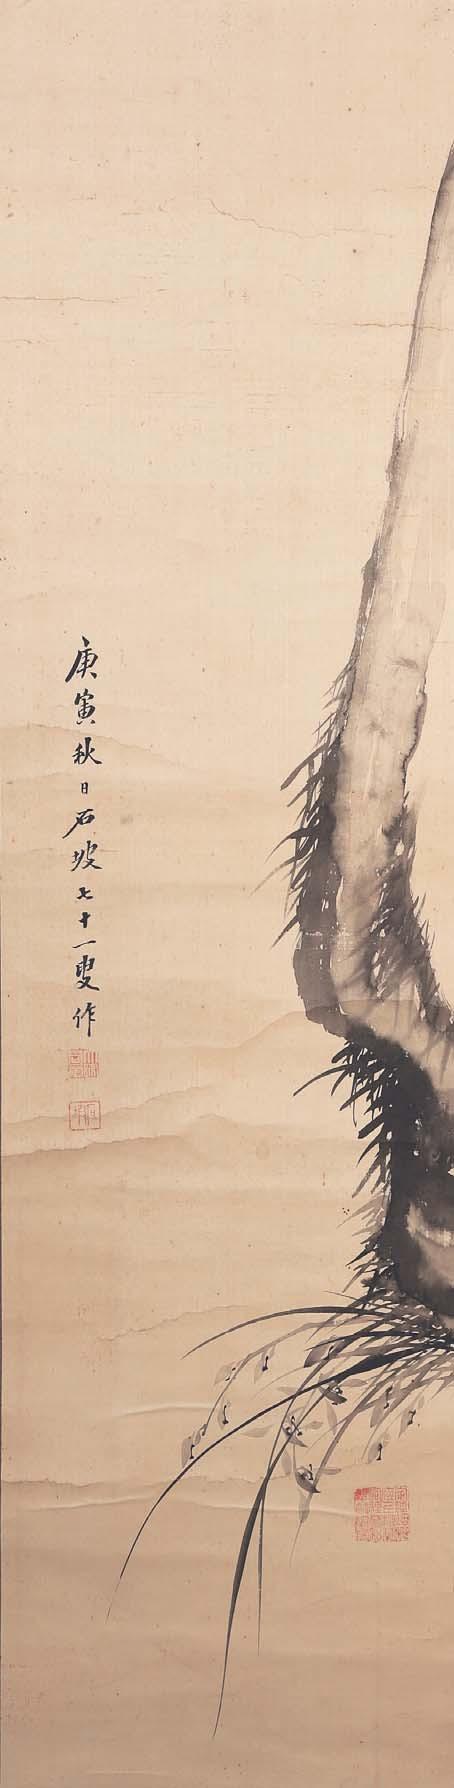 庚寅秋日石坡七十一叟作